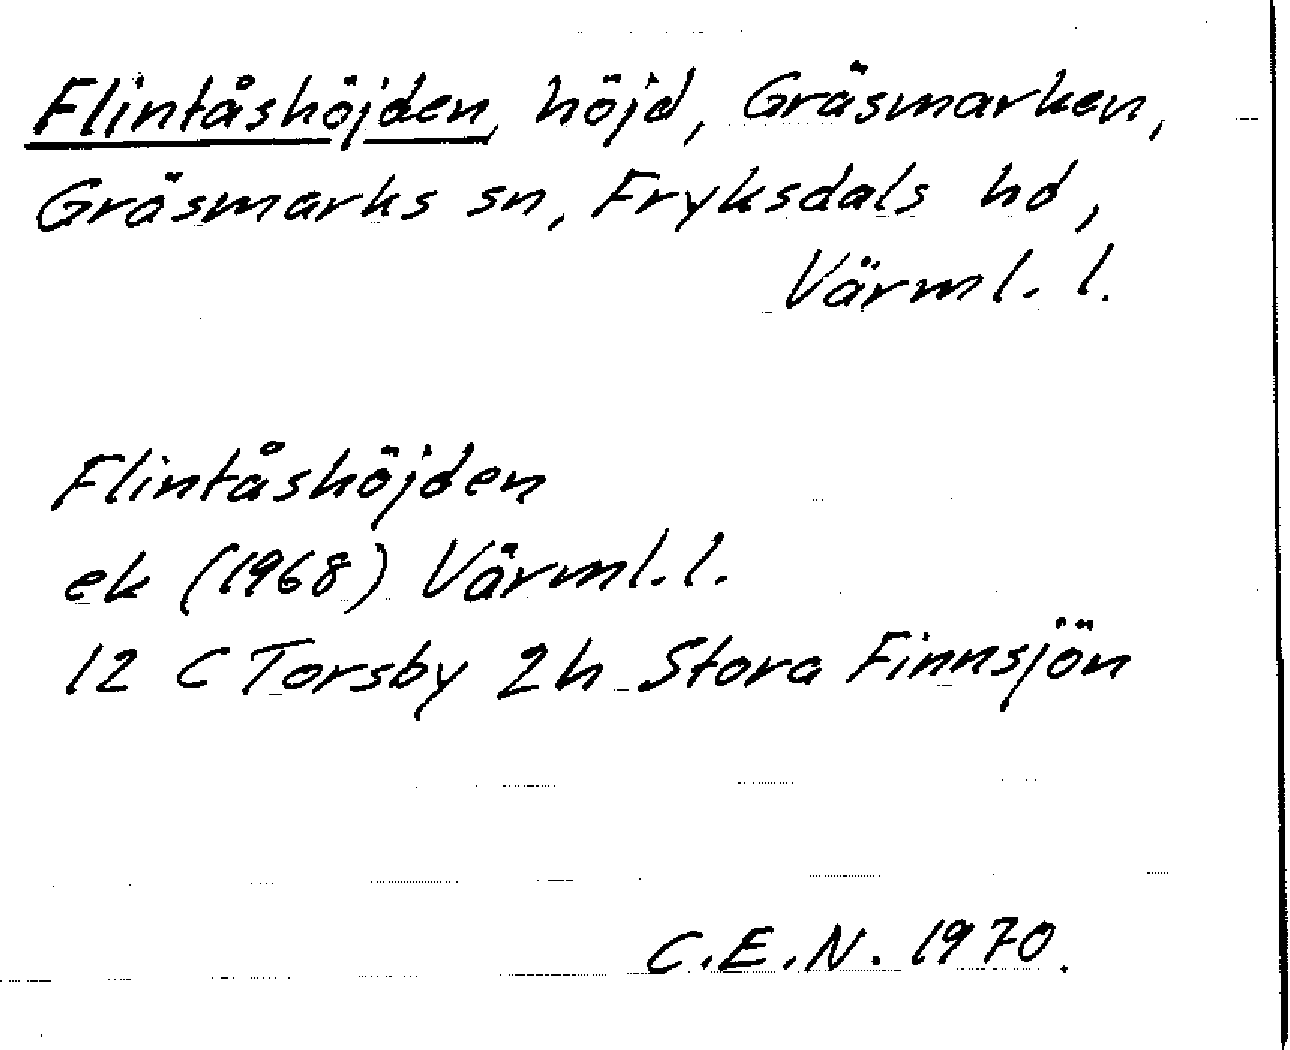 Flintåshöjden, höjd, Gräsmarken,
Gräsmarks sn, Fryksdals hd,
Värml. l.
Flintåshöjden
ek (1968) Värml. l.
12 C Torsby 2h Stora Finnsjön
C.E.N. 1970.